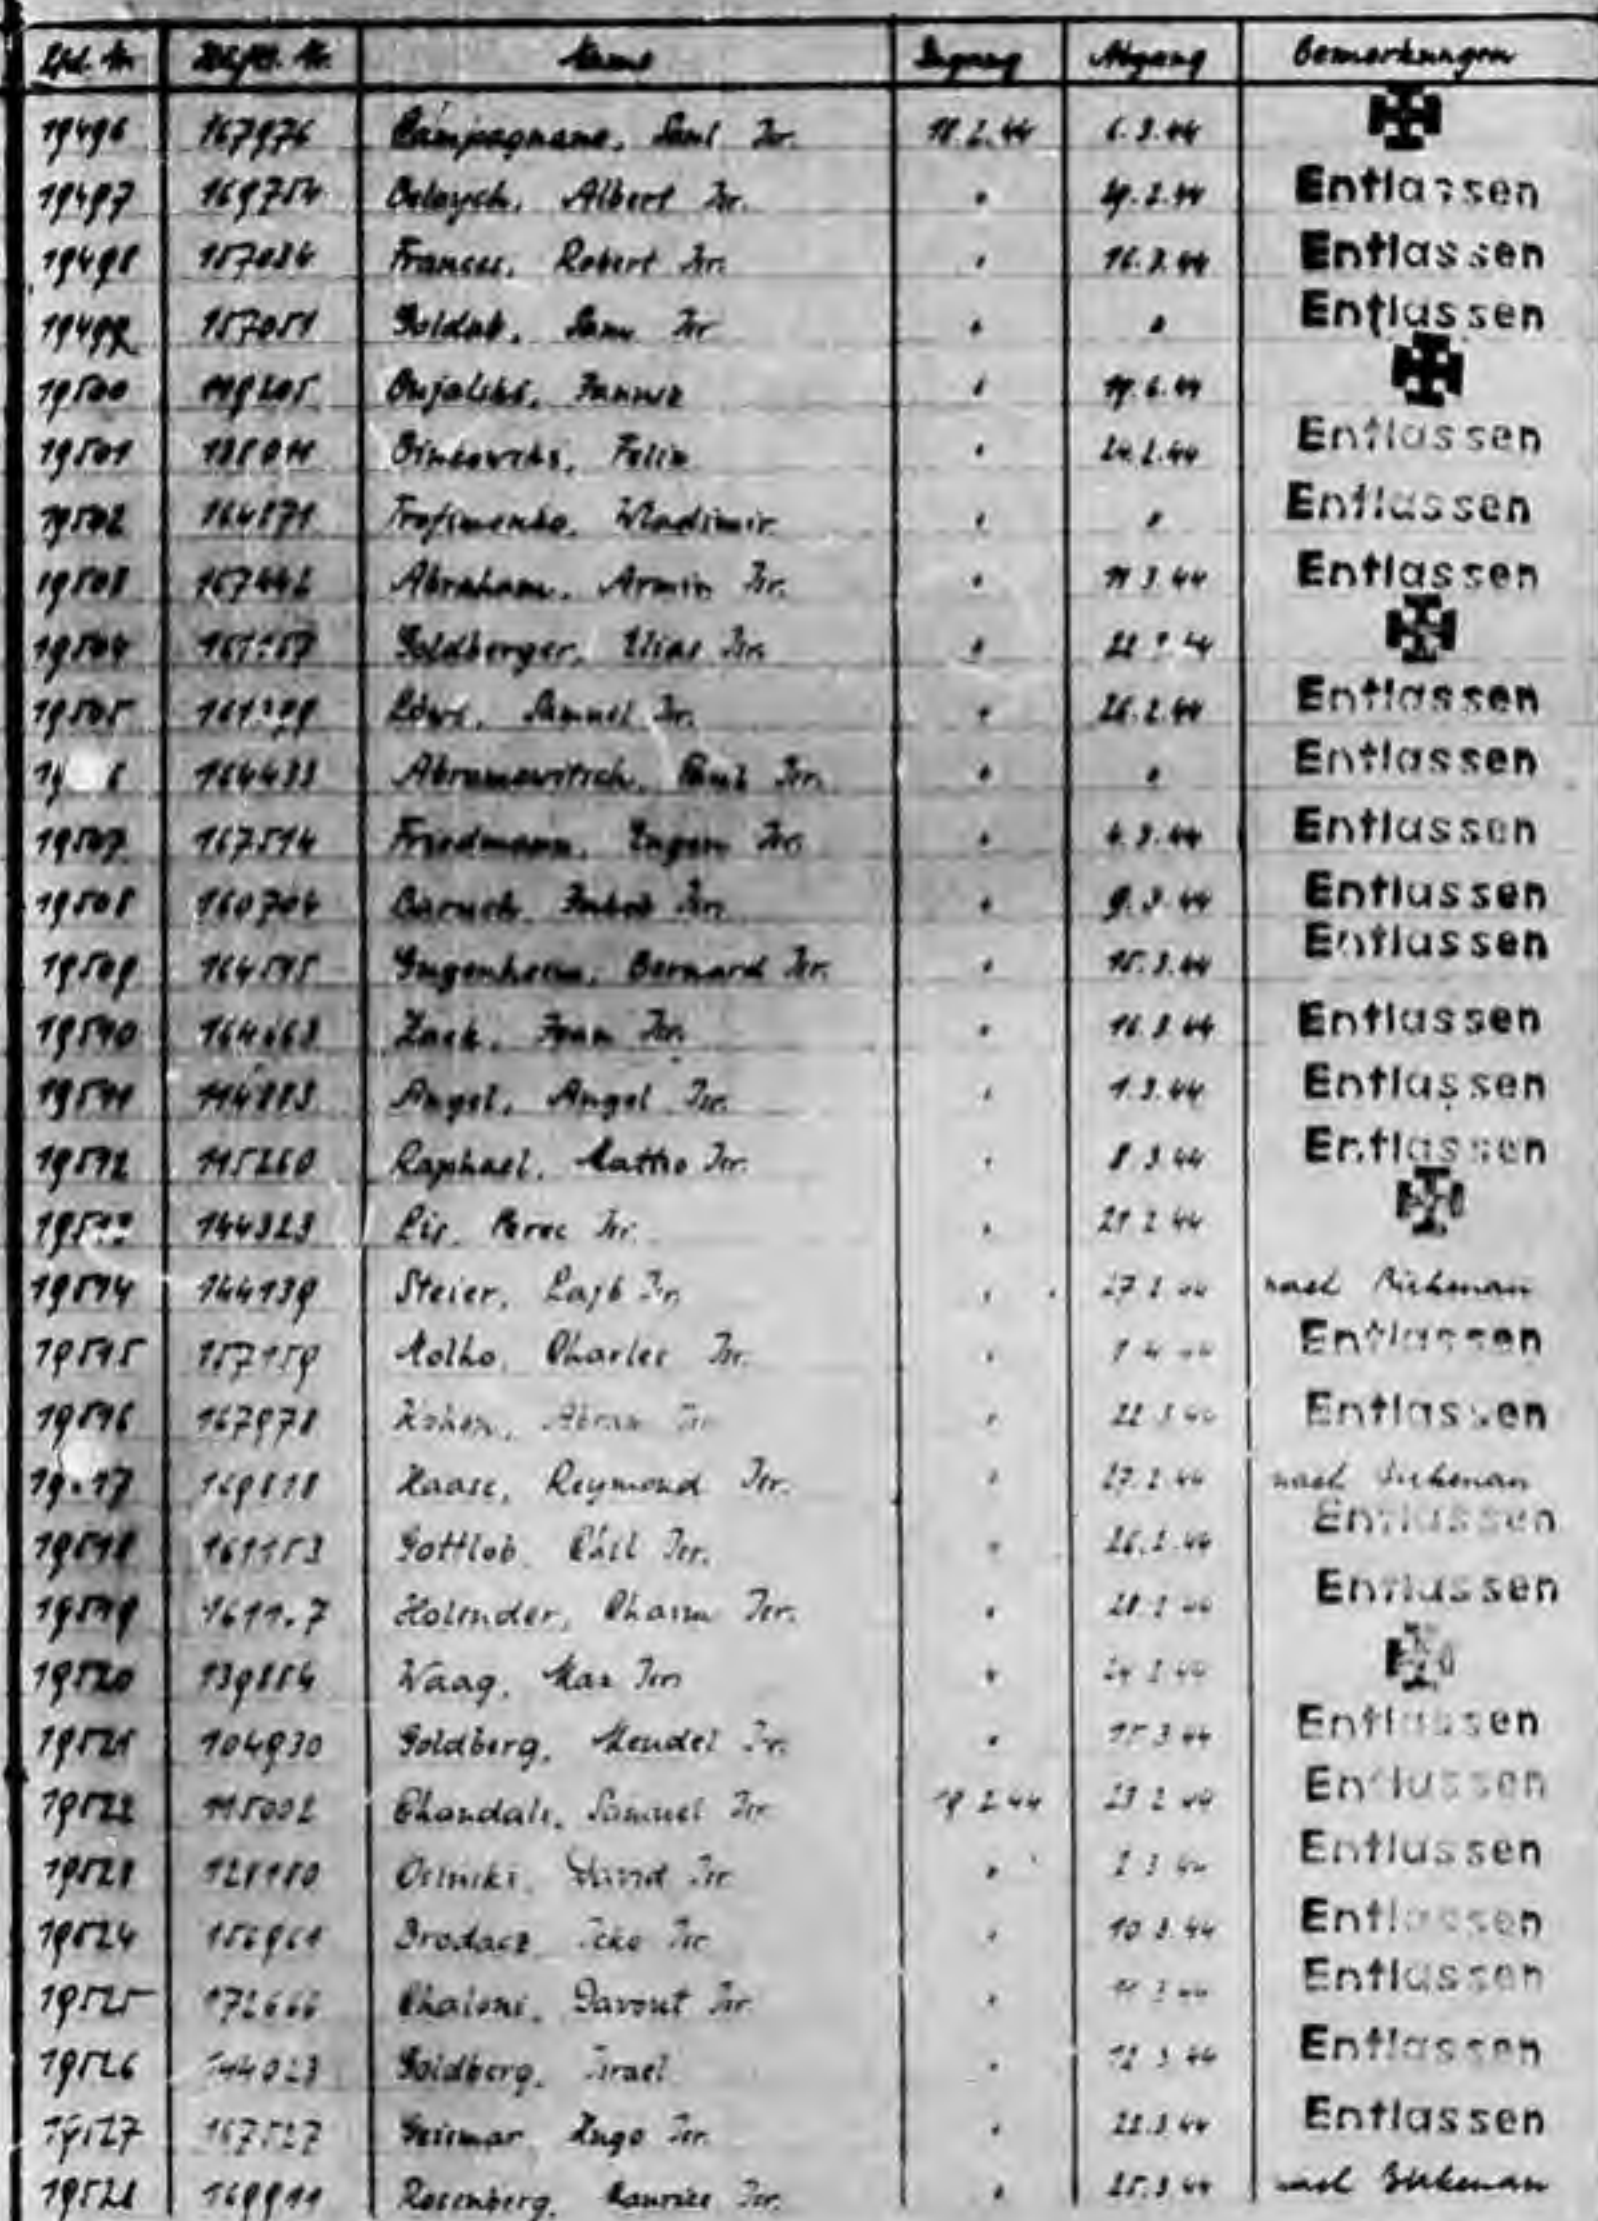 Lfd. Nr. Häftl. Nr. Name Zugang Abgang Bemerkungen
19496 167976 Campagnano, Saul Isr. 18.2.44 6.3.44
19497 169754 Albert Isr. " 29.2.44 Entlassen
19498 157034 Frances, Robert Isr. " 16.3.44 Entlassen
19499 157051 Isr. " " Entlassen
19500 119205 "
19501 Felix " 24.2.44 Entlassen
19502 164871 Trofimenko, Wladimir " " Entlassen
19503 167442 Abraham, Armin Isr. " 11.3.44 Entlassen
19504 Goldberger, Elias Isr. "
19505 Löwi, Samuel Isr. " 26.2.44 Entlassen
164433 Abramowitsch, Isr. " " Entlassen
19507 167514 Friedmann, Eugen Isr. " 4.3.44 Entlassen
19508 160704 Baruch, Isr. " 9.3.44 Entlassen
19509 164595 Gugenheim, Bernard Isr. " 15.3.44 Entlassen
19510 Isr. " 16.3.44 Entlassen
19511 114883 Angel, Angel Isr. " 1.3.44 Entlassen
19512 115260 Raphael, Isr. " 8.3.44 Entlassen
144323 Lis, Perec Isr. " 21.2.44
19514 144139 Steier, Lajb Isr. " 27.2.44 nach Birkenau
19515 157159 Molho, Charles Isr. " Entlassen
19516 167978 Kohen, Abram Isr. " 22.3.44 Entlassen
169818 Haase, Reymond Isr. " 27.2.44 nach Birkenau
19518 161153 Gottlob, Isr. " 26.2.44 Entlassen
19519 Holender, Chaim Isr. " 28.2.44 Entlassen
19520 139884 Waag, Max Isr. "
19521 104930 Goldberg, Mendel Isr. " 15.3.44 Entlassen
19522 115002 Samuel Isr. 19.2.44 23.2.44 Entlassen
19523 128180 David Isr. " 2.3.44 Entlassen
19524 Isr. " 10.3.44 Entlassen
19525 172666 Isr. " Entlassen
19526 144023 Goldberg, Israel " 12.3.44 Entlassen
19527 167527 Geismar, Hugo Isr. " 22.3.44 Entlassen
19528 169911 Rosenberg, Maurice Isr. " 25.3.44 nach Birkenau